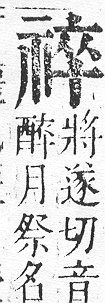 祽
將遂切音
醉月祭名